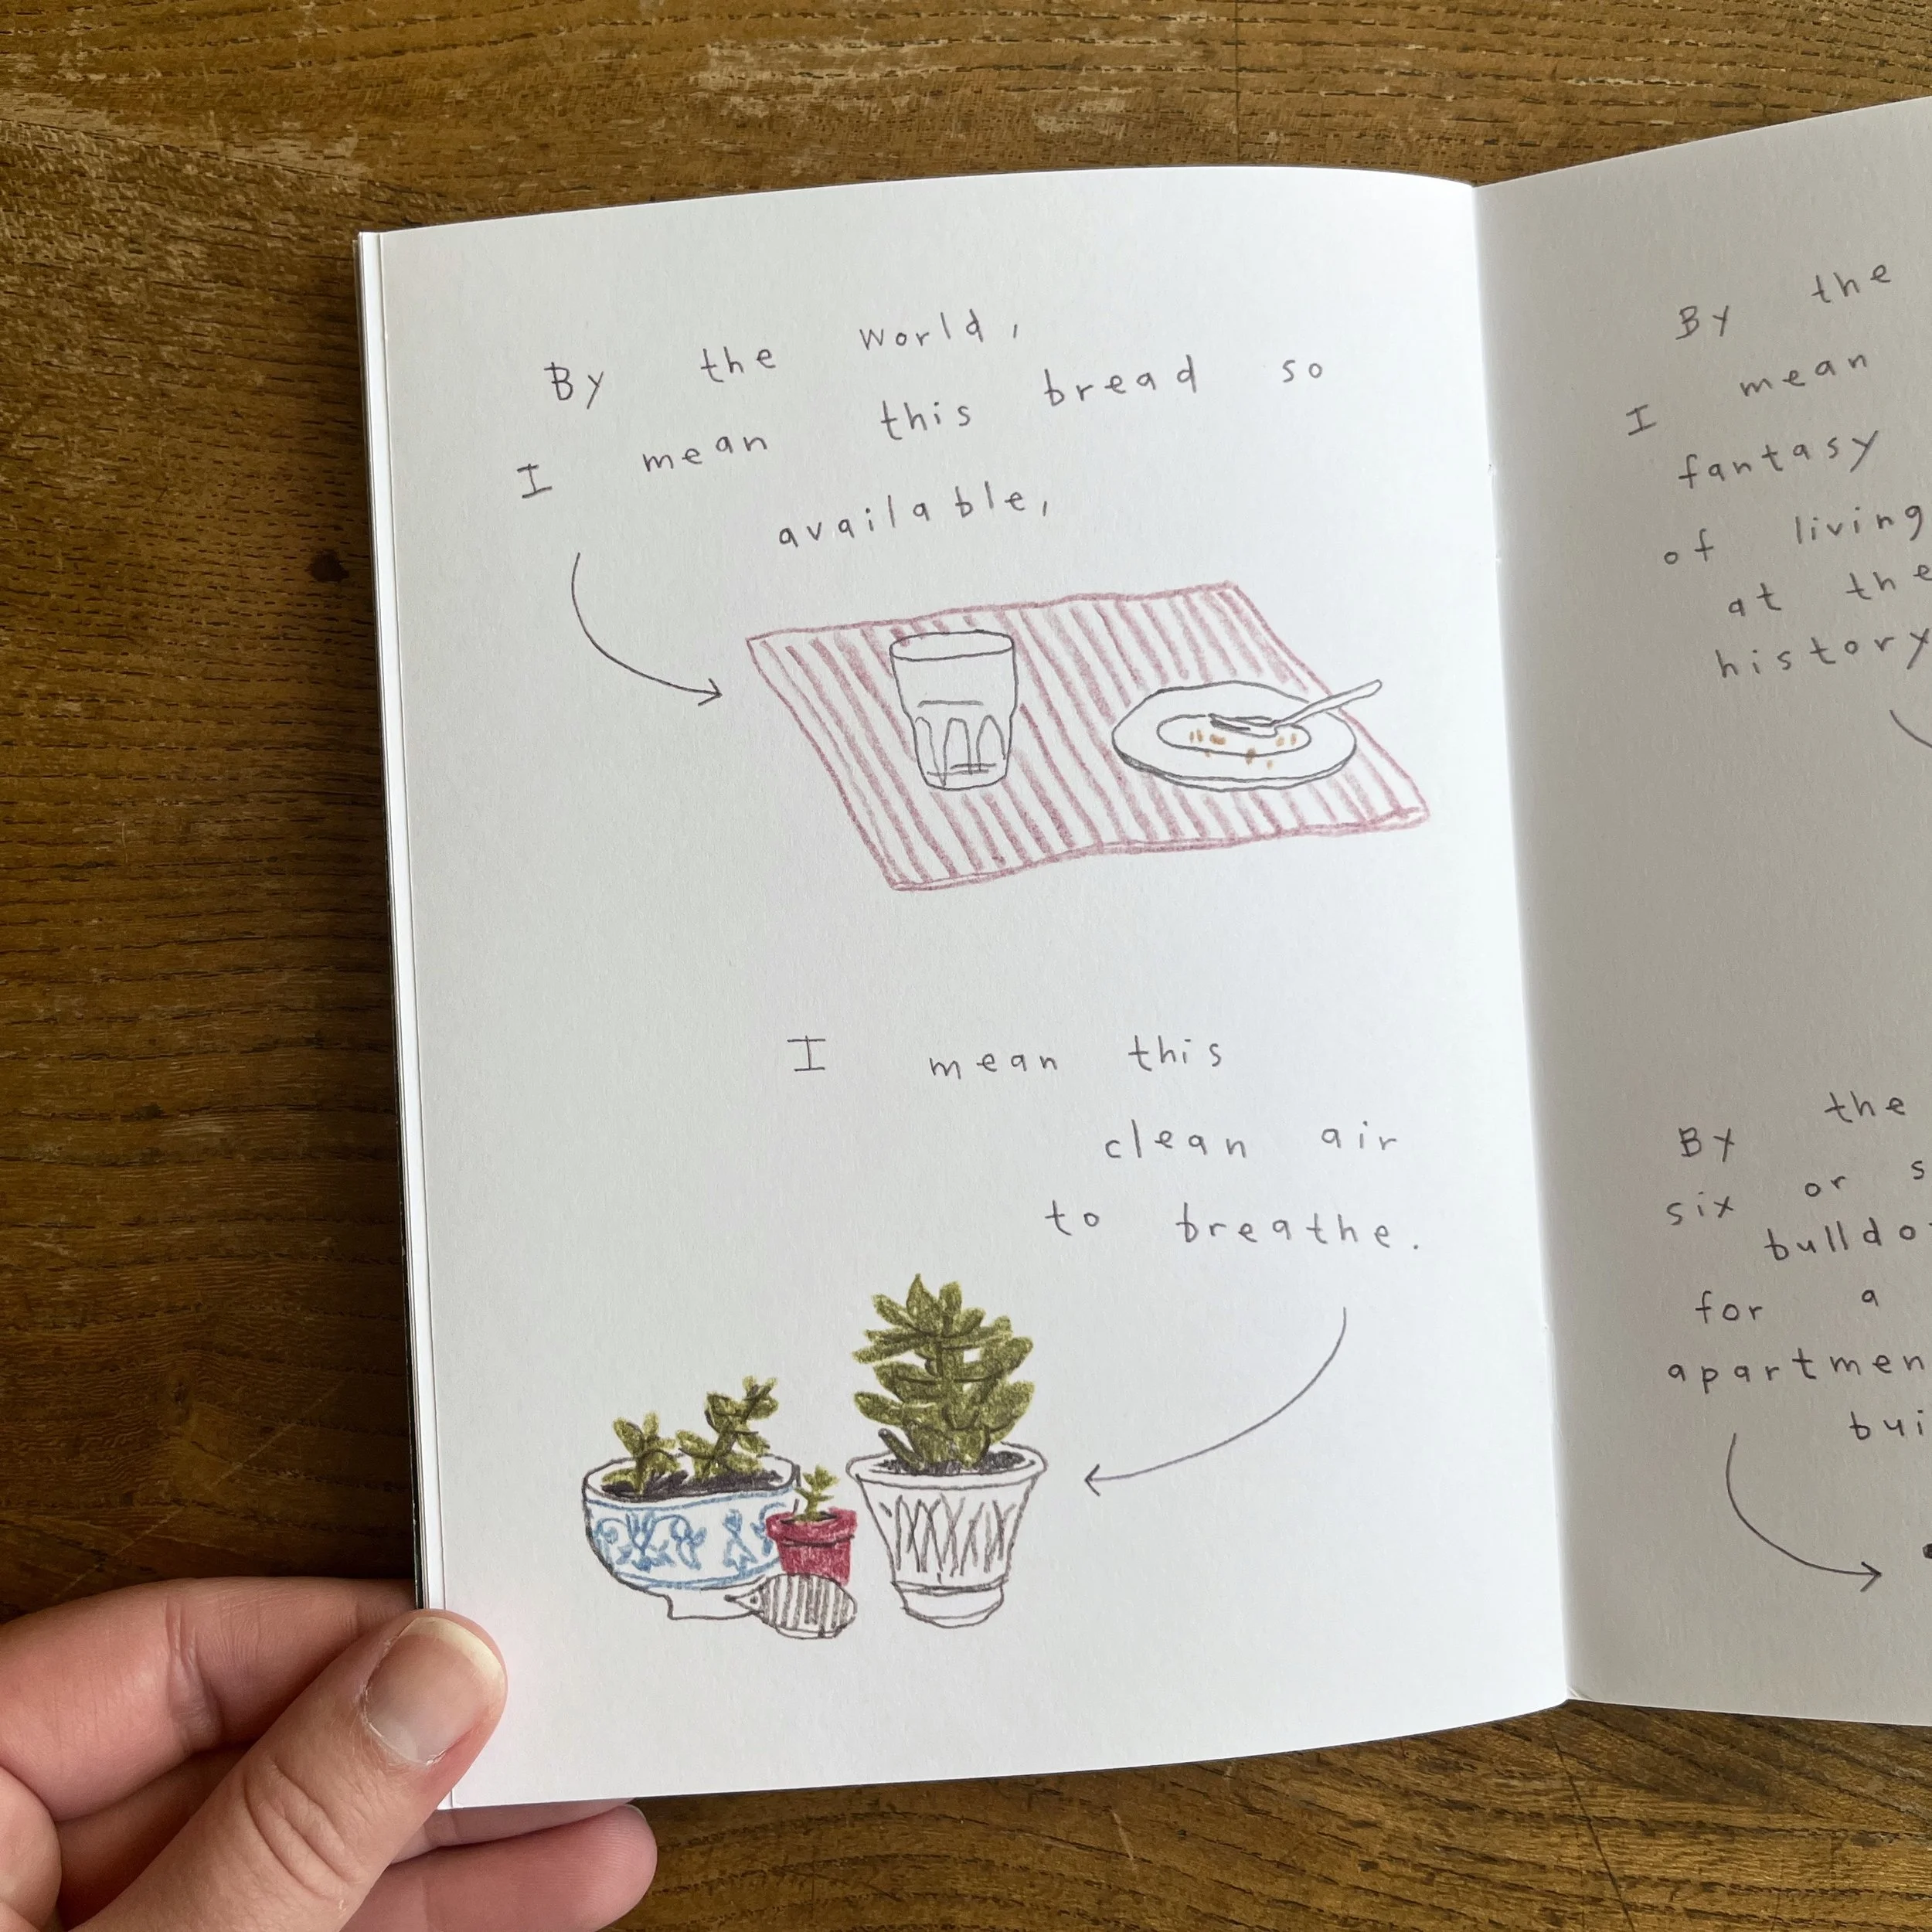 By the world,
I mean this bread so
available,
I mean this
clean air
to breathe.
By the
I mean
fantasy
of living
at the
history
By the
six or
for a